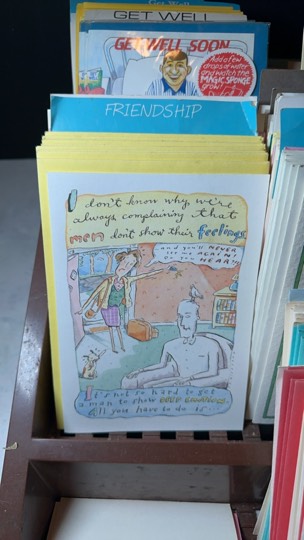 Get Well
GET WELL
GET WELL SOON
Add a few
drops of water
and watch the
MAGIC SPONGE
grow!
FRIENDSHIP
I don't know why we're
always complaining that
men don't show their feelings.
and you'll NEVER
see me AGAIN!
Do you HEAR?
It's not so hard to get
a man to show
All you have to do is